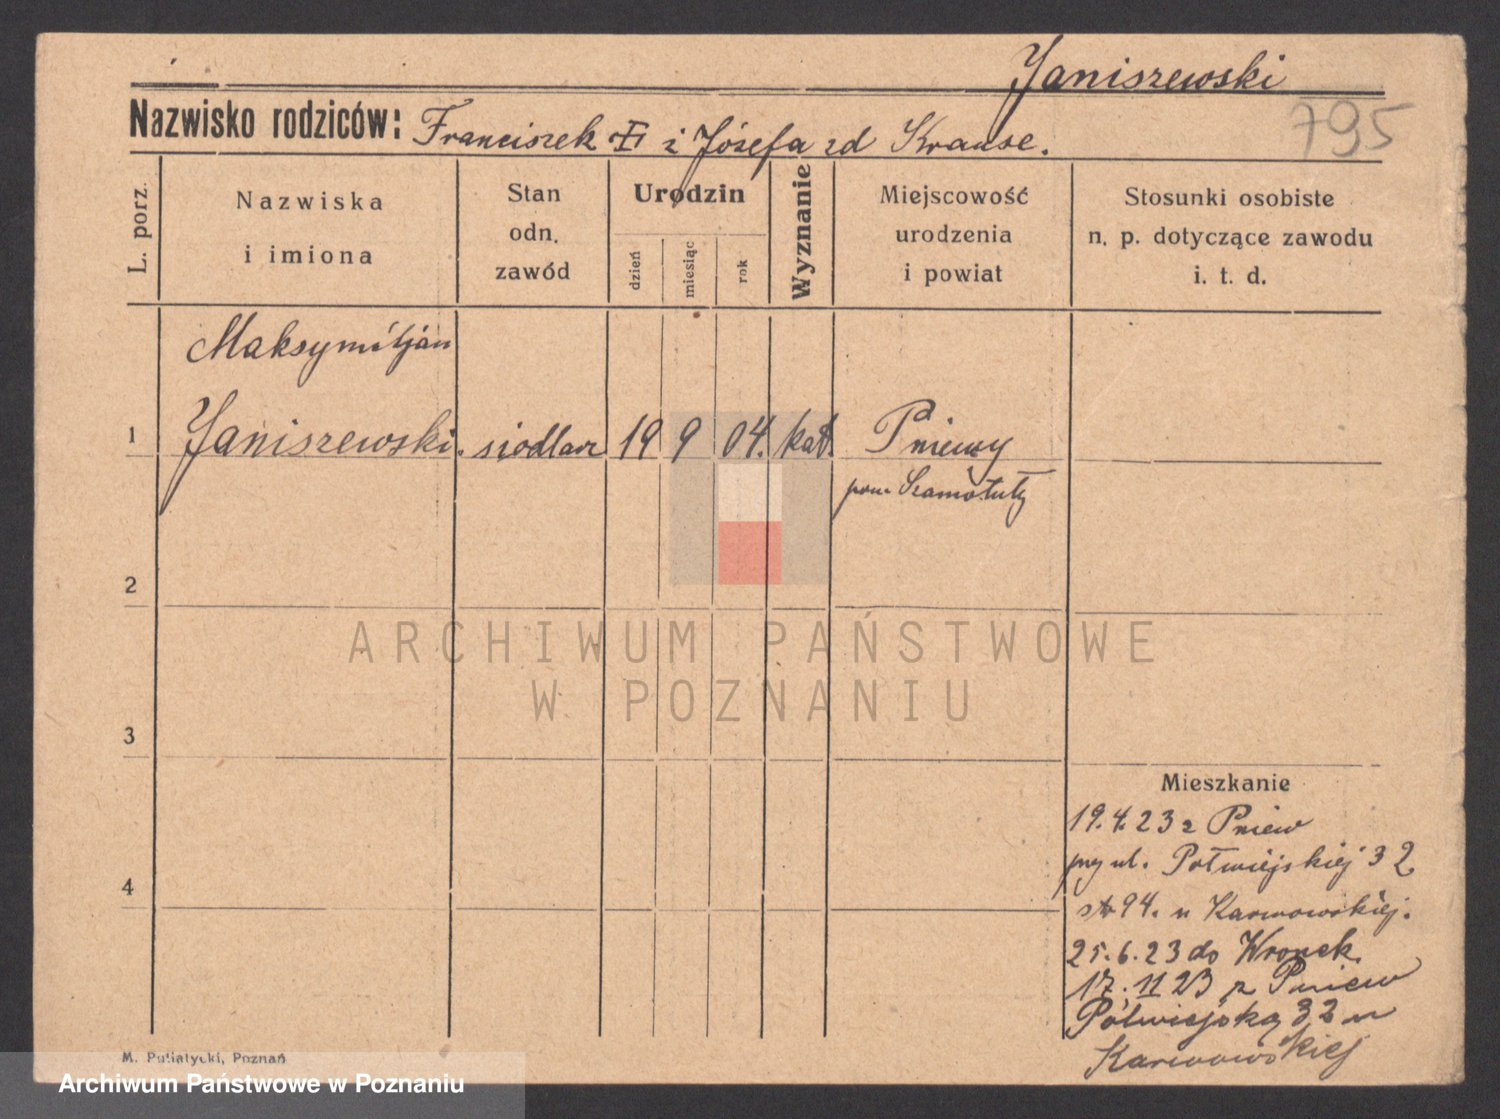 Janiszewski
795
Nazwisko rodziców: Franciszek i Józefa zd Krause.
L. porz.
Nazwiska
i imiona
Stan
odn.
zawód
Urodzin
dzień
miesiąc
rok
Wyznanie
Miejscowość
urodzenia
i powiat
Stosunki osobiste
n. p. dotyczące zawodu
i. t. d.
Maksymiljan
1 Janiszewski. siodlarz 19 9 04. kat. Pniewy
pow. Szamotuły
2
ARCHIWUM PAŃSTWOWE
W POZNANIU
3
Mieszkanie
19.4.23 z Pniew
przy ul. Półwiejskiej 32
4
94. u Karwowskiej.
25.6.23 do Wronek
17.11 23 z Pniew
Półwiejską 32 u
Karwowskiej
M. Putiatycki, Poznań
Archiwum Państwowe w Poznaniu